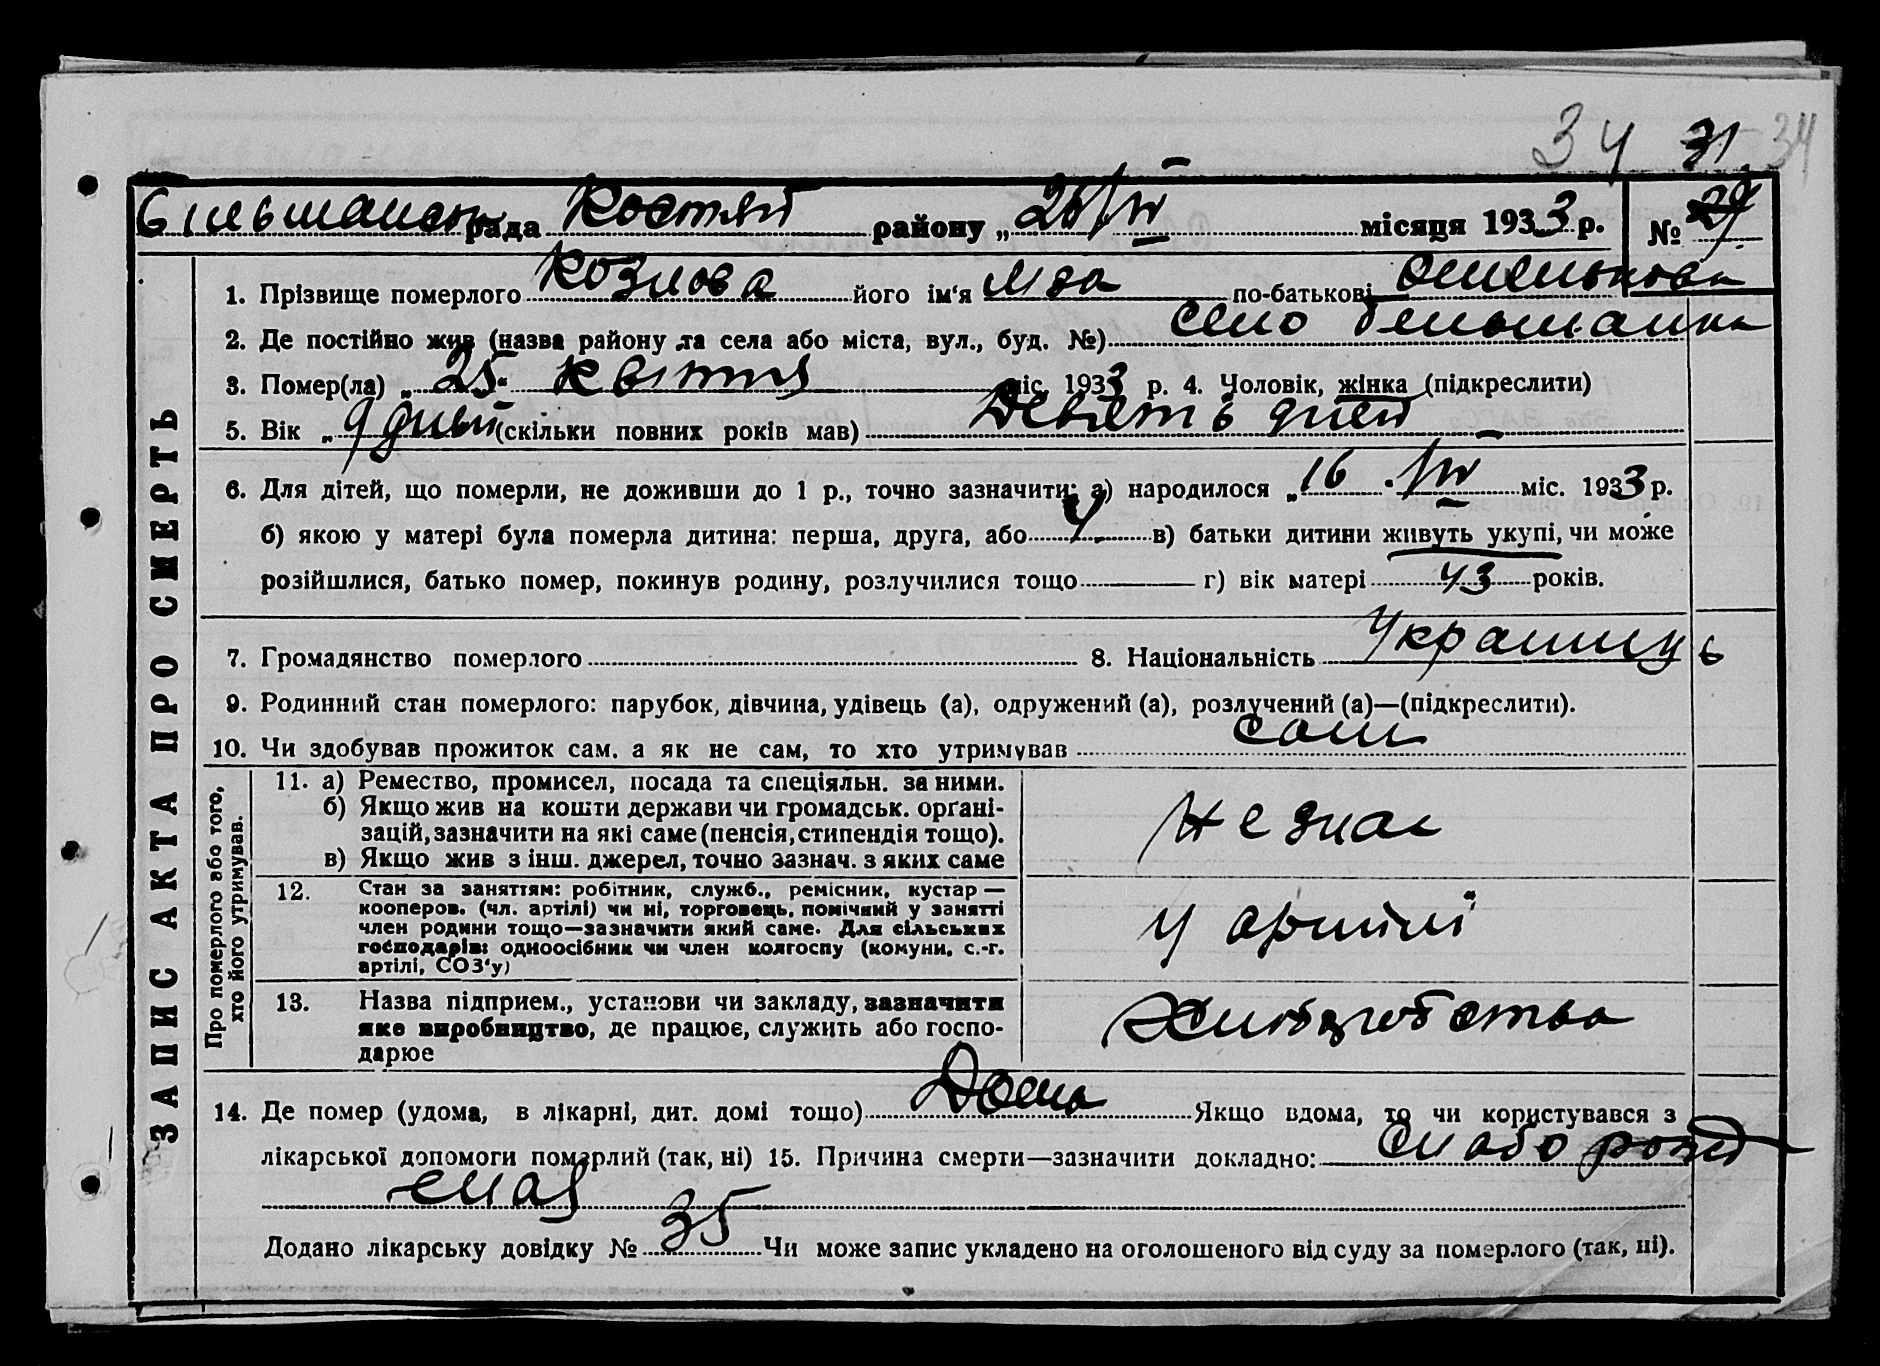 34 31. 34
Більшанська рада Костян району „ 26/IV місяця 1933 р. № 29
ЗАПИС АКТА ПРО СМЕРТЬ
1. Прізвище померлого Козлова його ім'я Ліда по-батькові Омелькова
2. Де постійно жив (назва району та села або міста, вул., буд. №) село Більшанка
3. Помер(ла) „ 25 " Квітня міс. 1933 р. 4. Чоловік, жінка (підкреслити)
5. Вік „ 9 дней (скільки повних років мав) Девять дней
6. Для дітей, що померли, не доживши до 1 р., точно зазначити: а) народилося „ 16 . IV міс. 1933 р.
б) якою у матері була померла дитина: перша, друга, або 4. в) батьки дитини живуть укупі, чи може
розійшлися, батько помер, покинув родину, розлучилися тощо г) вік матері 43 років.
7. Громадянство померлого 8. Національність Українць
9. Родинний стан померлого: парубок, дівчина, удівець (а), одружений (а), розлучений (а)—(підкреслити).
10. Чи здобував прожиток сам. а як не сам, то хто утримував
Про померлого або того, хто його утримував.
11. а) Ремество, промисел, посада та спеціяльн. за ними.
б) Якщо жив на кошти держави чи громадськ. орґані-
зацій, зазначити на які саме (пенсія, стипендія тощо).
в) Якщо жив з інш. джерел, точно зазнач. з яких саме
Не знає
12. Стан за заняттям: робітник, служб., ремісник, кустар —
кооперов. (чл. артілі) чи ні, торговець, помічний у занятті
член родини тощо—зазначити який саме. Для сільських
господарів: одноосібник чи член колгоспу (комуни, с.-г.
артілі, СОЗ'у)
у артілі
13. Назва підприєм., установи чи закладу, зазначити
яке виробництво, де працює, служить або госпо-
дарює
Хліборобства
14. Де помер (удома, в лікарні, дит. домі тощо) Дома Якщо вдома, то чи користувався з
лікарської допомоги померлий (так, ні) 15. Причина смерти—зазначити докладно: Слабо рожд
еная
Додано лікарську довідку № 35 Чи може запис укладено на оголошеного від суду за померлого (так, ні).